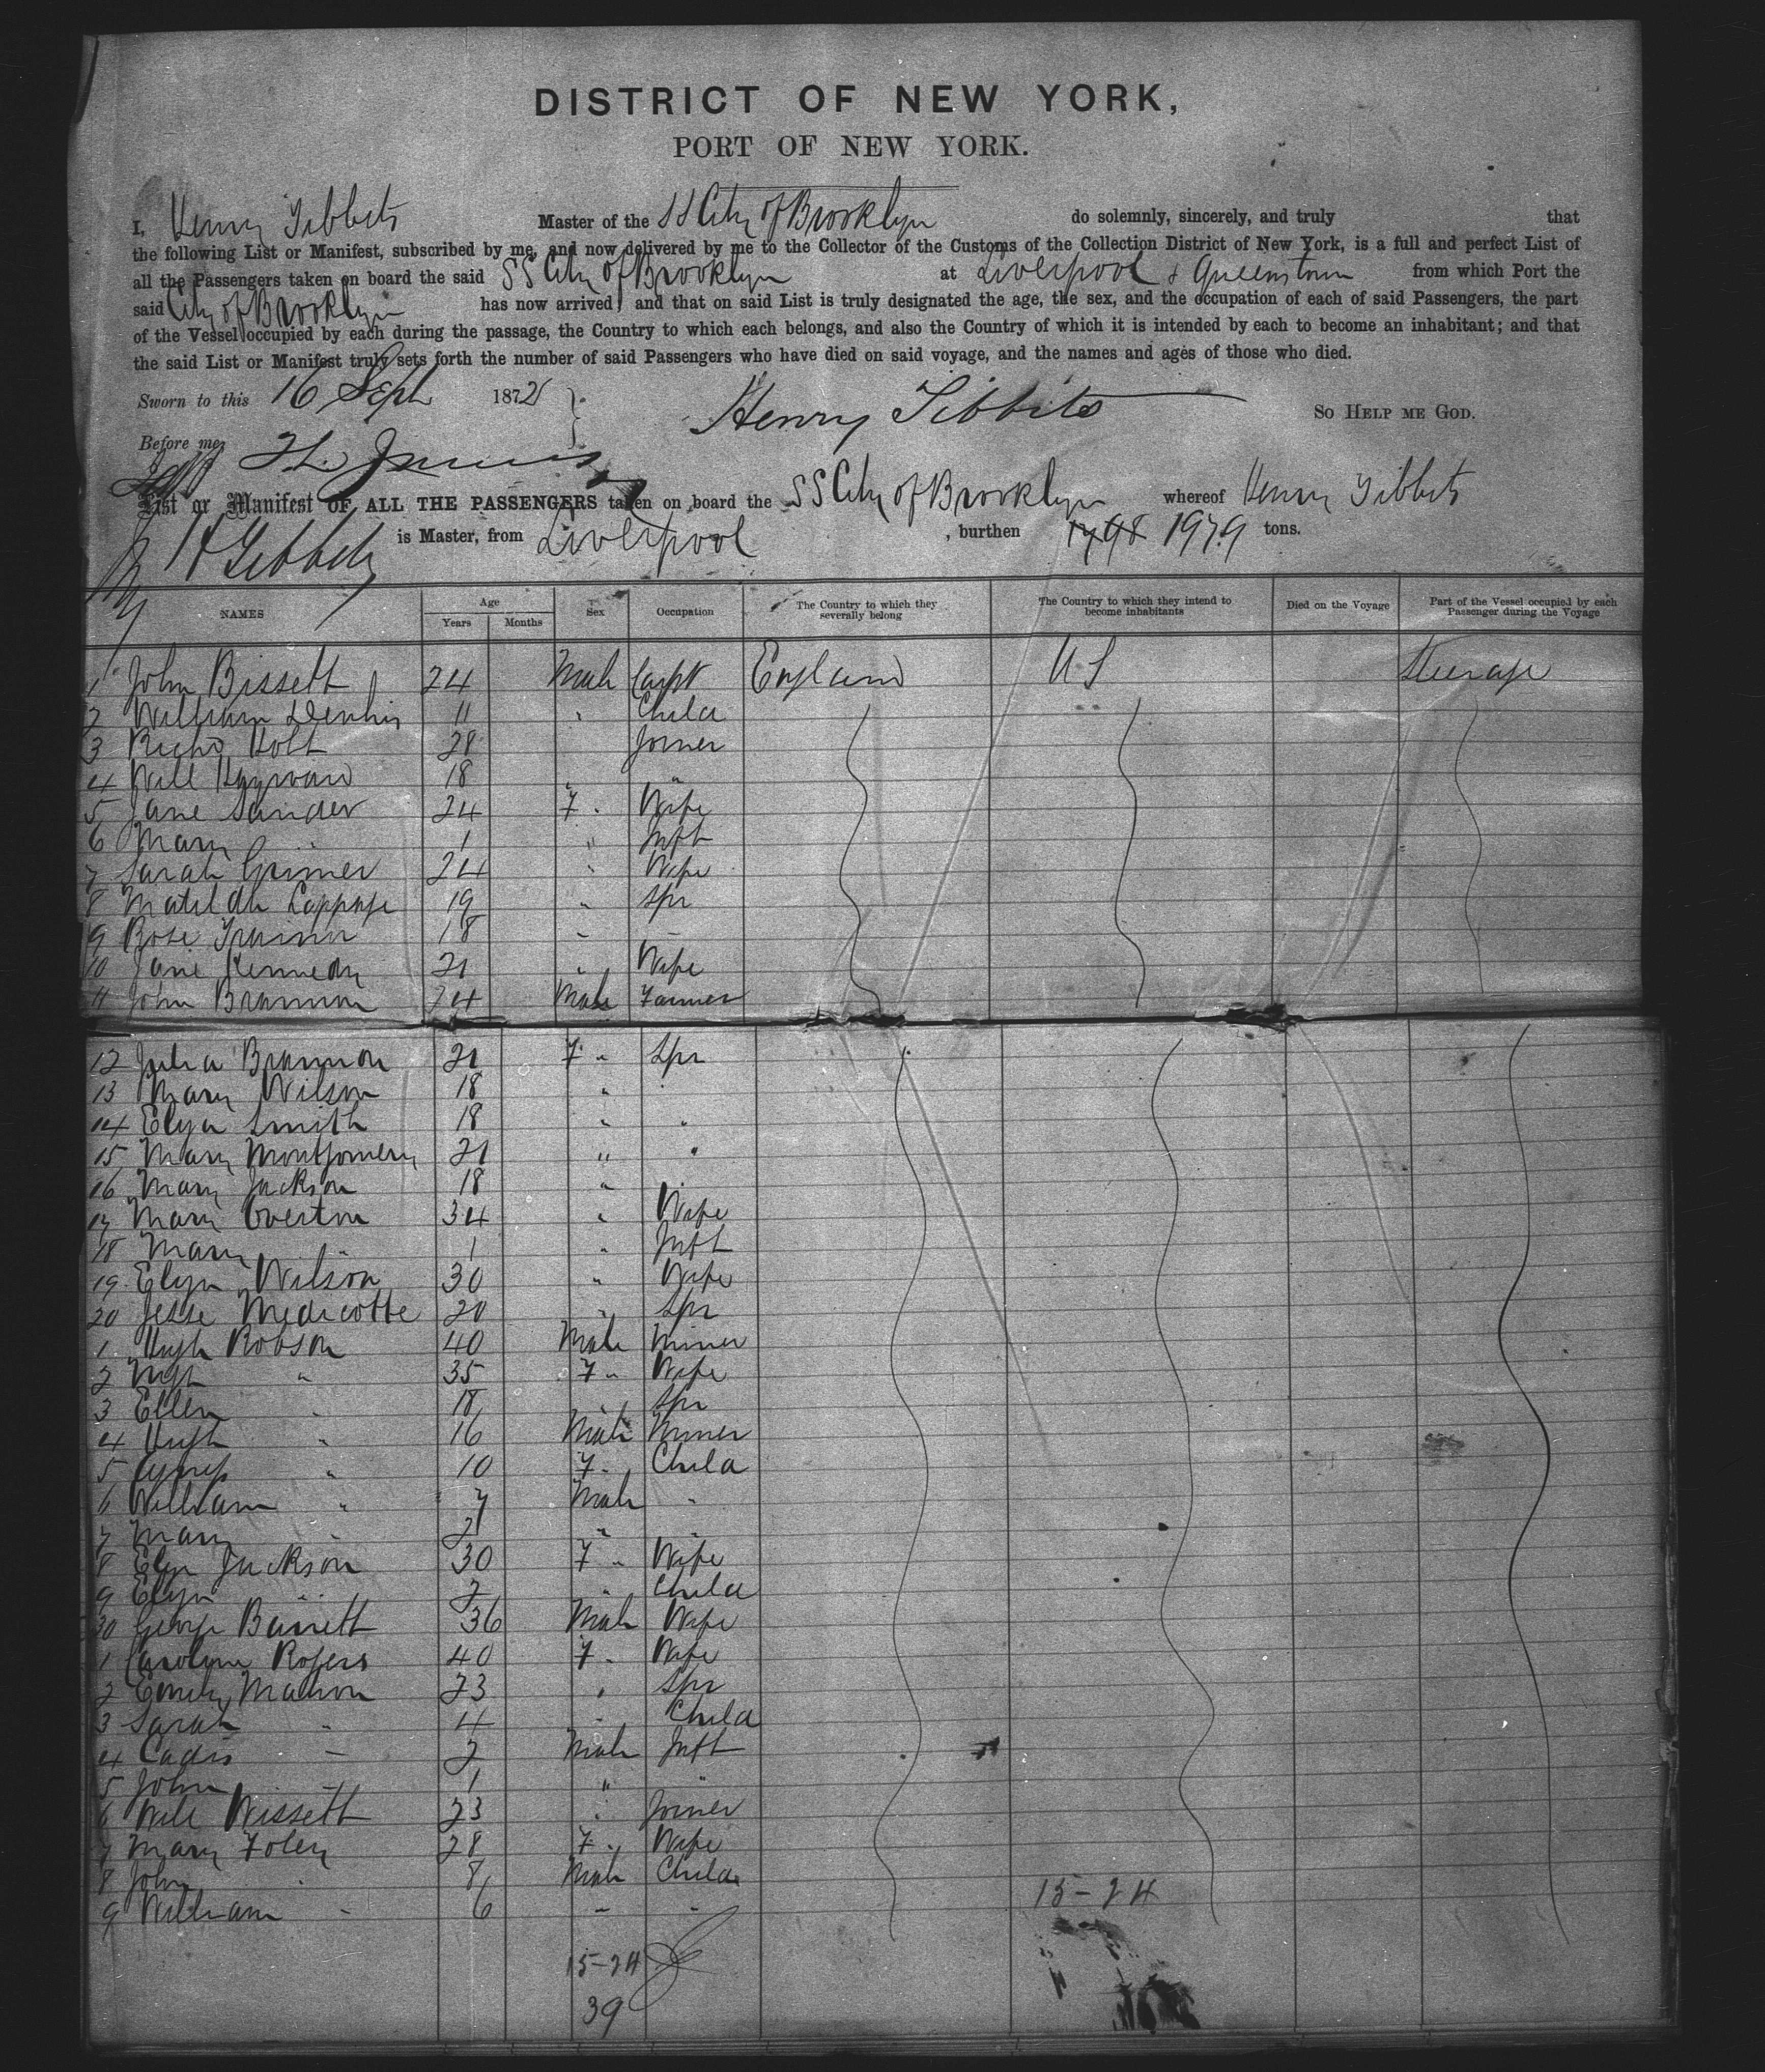 DISTRICT OF NEW YORK,
PORT OF NEW YORK.
I, Henry Tibbits Master of the SS City of Brooklyn do solemnly, sincerely, and truly that
the following List or Manifest, subscribed by me, and now delivered by me to the Collector of the Customs of the Collection District of New York, is a full and perfect List of
all the Passengers taken on board the said SS City of Brooklyn at Liverpool & Queenstown from which Port the
said City of Brooklyn has now arrived; and that on said List is truly designated the age, the sex, and the occupation of each of said Passengers, the part
of the Vessel occupied by each during the passage, the Country to which each belongs, and also the Country of which it is intended by each to become an inhabitant; and that
the said List or Manifest truly sets forth the number of said Passengers who have died on said voyage, and the names and ages of those who died.
Sworn to this 16 Sept 1872 Henry Tibbits SO HELP ME GOD.
Before me,
List or Manifest OF ALL THE PASSENGERS taken on board the SS City of Brooklyn whereof Henry Tibbits
is Master, from Liverpool, burthen 1979 tons.
H Tibbits
NAMES Age Years Months Sex Occupation The Country to which they severally belong The Country to which they intend to become inhabitants Died on the Voyage Part of the Vessel occupied by each Passenger during the Voyage
1 John Bissett 24 Male Carpt England U S Steerage
2 William 11 " Child
3 Richd Holt 28 Joiner
4 Will Hayward 18 "
5 Jane Sander 24 F " Wife
6 Mary 1 " Inft
7 Sarah Grimer 24 " Wife
8 Matilda 19 " Spr
9 Rose 18 "
10 Jane Kennedy 21 " Wife
11 John Brannon 24 Male Farmer
12 Julia Brannon 21 F " Spr
13 Mary Wilson 18 " "
14 Elyza Smith 18 " "
15 Mary Montgomery 21 " "
16 Mary Jackson 18 "
17 Mary Overton 34 " Wife
18 Mary " 1 " Inft
19 Elyza Wilson 30 " Wife
20 Jesse Medicotte 20 " Spr
1 Hugh Robson 40 Male Miner
2 Mgt " 35 F " Wife
3 Ellen " 18 " Spr
4 Hugh " 16 Male Miner
5 Agness " 10 F " Child
6 William " 7 Male "
7 Mary " 2 " "
8 Elyz Jackson 30 F " Wife
9 Elyza 2 " Child
30 George Barrett 36 Male Wife
1 Caroline Rogers 40 F " Wife
2 Emily Marron 23 " Spr
3 Sarah " 4 " Child
4 2 Male Inft
5 John 1 " "
6 Will Wissett 23 " Joiner
7 Mary Foley 28 F " Wife
8 John " 8 Male Child
9 William " 6 " "
15-24
15-24
39